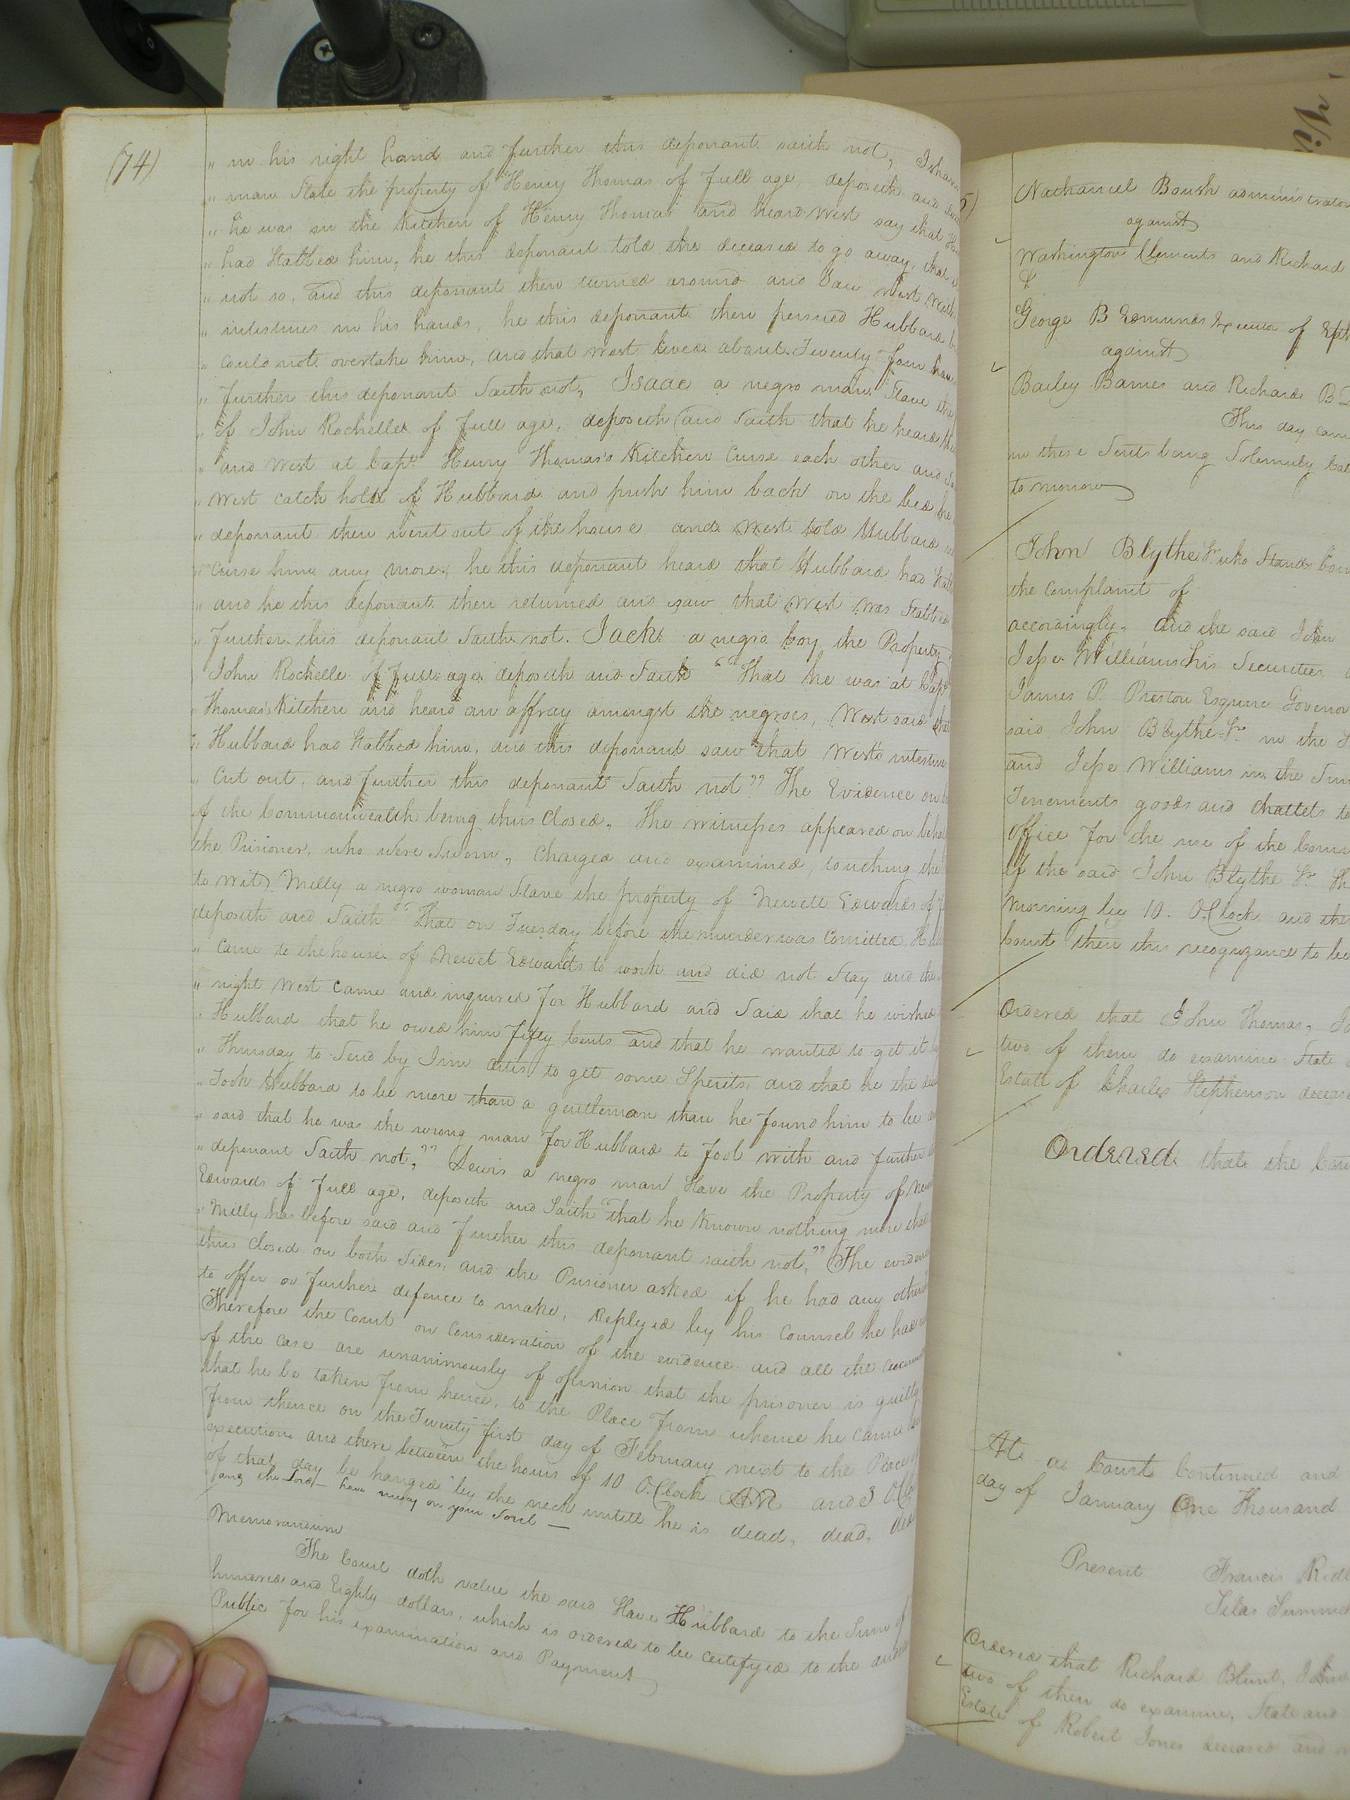 (74)
" in his right hand and further this deponant saith not,
" man Slave the property of Henry Thomas of full age, deposith and
" he was in the Kitchen of Henry Thomas and heard West say that
" had Stabbed him, he this deponant told the deceased to go away, that
" not so, and this deponant then turned around and Saw West with
" intestines in his hands, he this deponant then persued Hubbard
" could not overtake him, and that West lived about Twenty four
" further this deponant Saith not, Isaac a negro man Slave the
" of John Rochelle of full age, deposith and Saith that he heard
" and West at Capt. Henry Thomas's Kitchen Curse each other and
" West catch hold of Hubbard and push him back on the bed
" deponant then went out of the house and West told Hubbard
" Curse him any more, he this deponant heard that Hubbard had
" and he this deponant then returned and saw that West was Stabbed
" further this deponant Saith not. Jack a negro boy the Property
John Rochelle of full age deposith and Saith " That he was at Capt.
" Thomas's Kitchen and heard an affray amongst the negroes, West said that
" Hubbard had Stabbed him, and this deponant saw that West's
" Cut out, and further this deponant Saith not" The Evidence on
of the Commonwealth being thus Closed, The witnesses appeared on
the Prisoner, who were Sworn, Charged and examined, touching the
to wit, Milly a negro woman Slave the property of Newell Edwards of
deposith and Saith " That on Tuesday before the murder was Comitted
" Came to the house of Newel Edwards to work and did not Stay and
" night West Came and inquired for Hubbard and Said that he wished
" Hubbard that he owed him fifty Cents and that he wanted to get it
" Thursday to Send by Jim to get some Spirits, and that he the
" Took Hubbard to be more than a gentleman than he found him to be
" said that he was the wrong man for Hubbard to fool with and further
" deponant Saith not," Lewis a negro man Slave the Property of
Edwards of full age, deposith and Saith "that he known nothing more
" Milly has before said and further this deponant saith not," The
thus Closed on both Sides, and the Prisoner asked if he had any
to offer or further defence to make, Replyed by his Counsel he had
Therefore the Court on Consideration of the evidence and all the
of the case are unanimously of opinion that the prisoner is guilty
that he be taken from hence, to the Place from whence he came
from thence on the Twenty first day of February next to the Place
execution and there between the hours of 10 O.Clock AM and 3
of that day be hanged by the neck untill he is dead, dead,
the Lord have mercy on your Soul
Memorandum
The Court doth value the said Slave Hubbard to the Sum of
hundred and Eighty dollars, which is ordered to be Certifyed to the
Public for his examination and Payment
Nathaniel Boush administrator
against
Washington Clements and Richard
&
George B Edmunds Executor of
against
Bailey Barnes and Richard B
This day came
in these Suits being Solemnly
to morrow
John Blythe Sr. who Stands
the complaint of
accordingly. And the said John
Jesse Williams his Securities
James P. Preston Esquire Govenor
said John Blythe Sr. in the
and Jesse Williams in the Sum
Tenements goods and chattels
office for the use of the
if the said John Blythe Sr.
morning by 10. O.Clock and
Court then this recognizance to be
Ordered that John Thomas,
two of them do examine State
Estate of Charles Stephenson
Ordered that the
At a Court Continued and
day of January One Thousand
Present Francis
Silas
Ordered that Richard Blunt,
two of them do examine, State and
Estate of Robert Jones deceased and